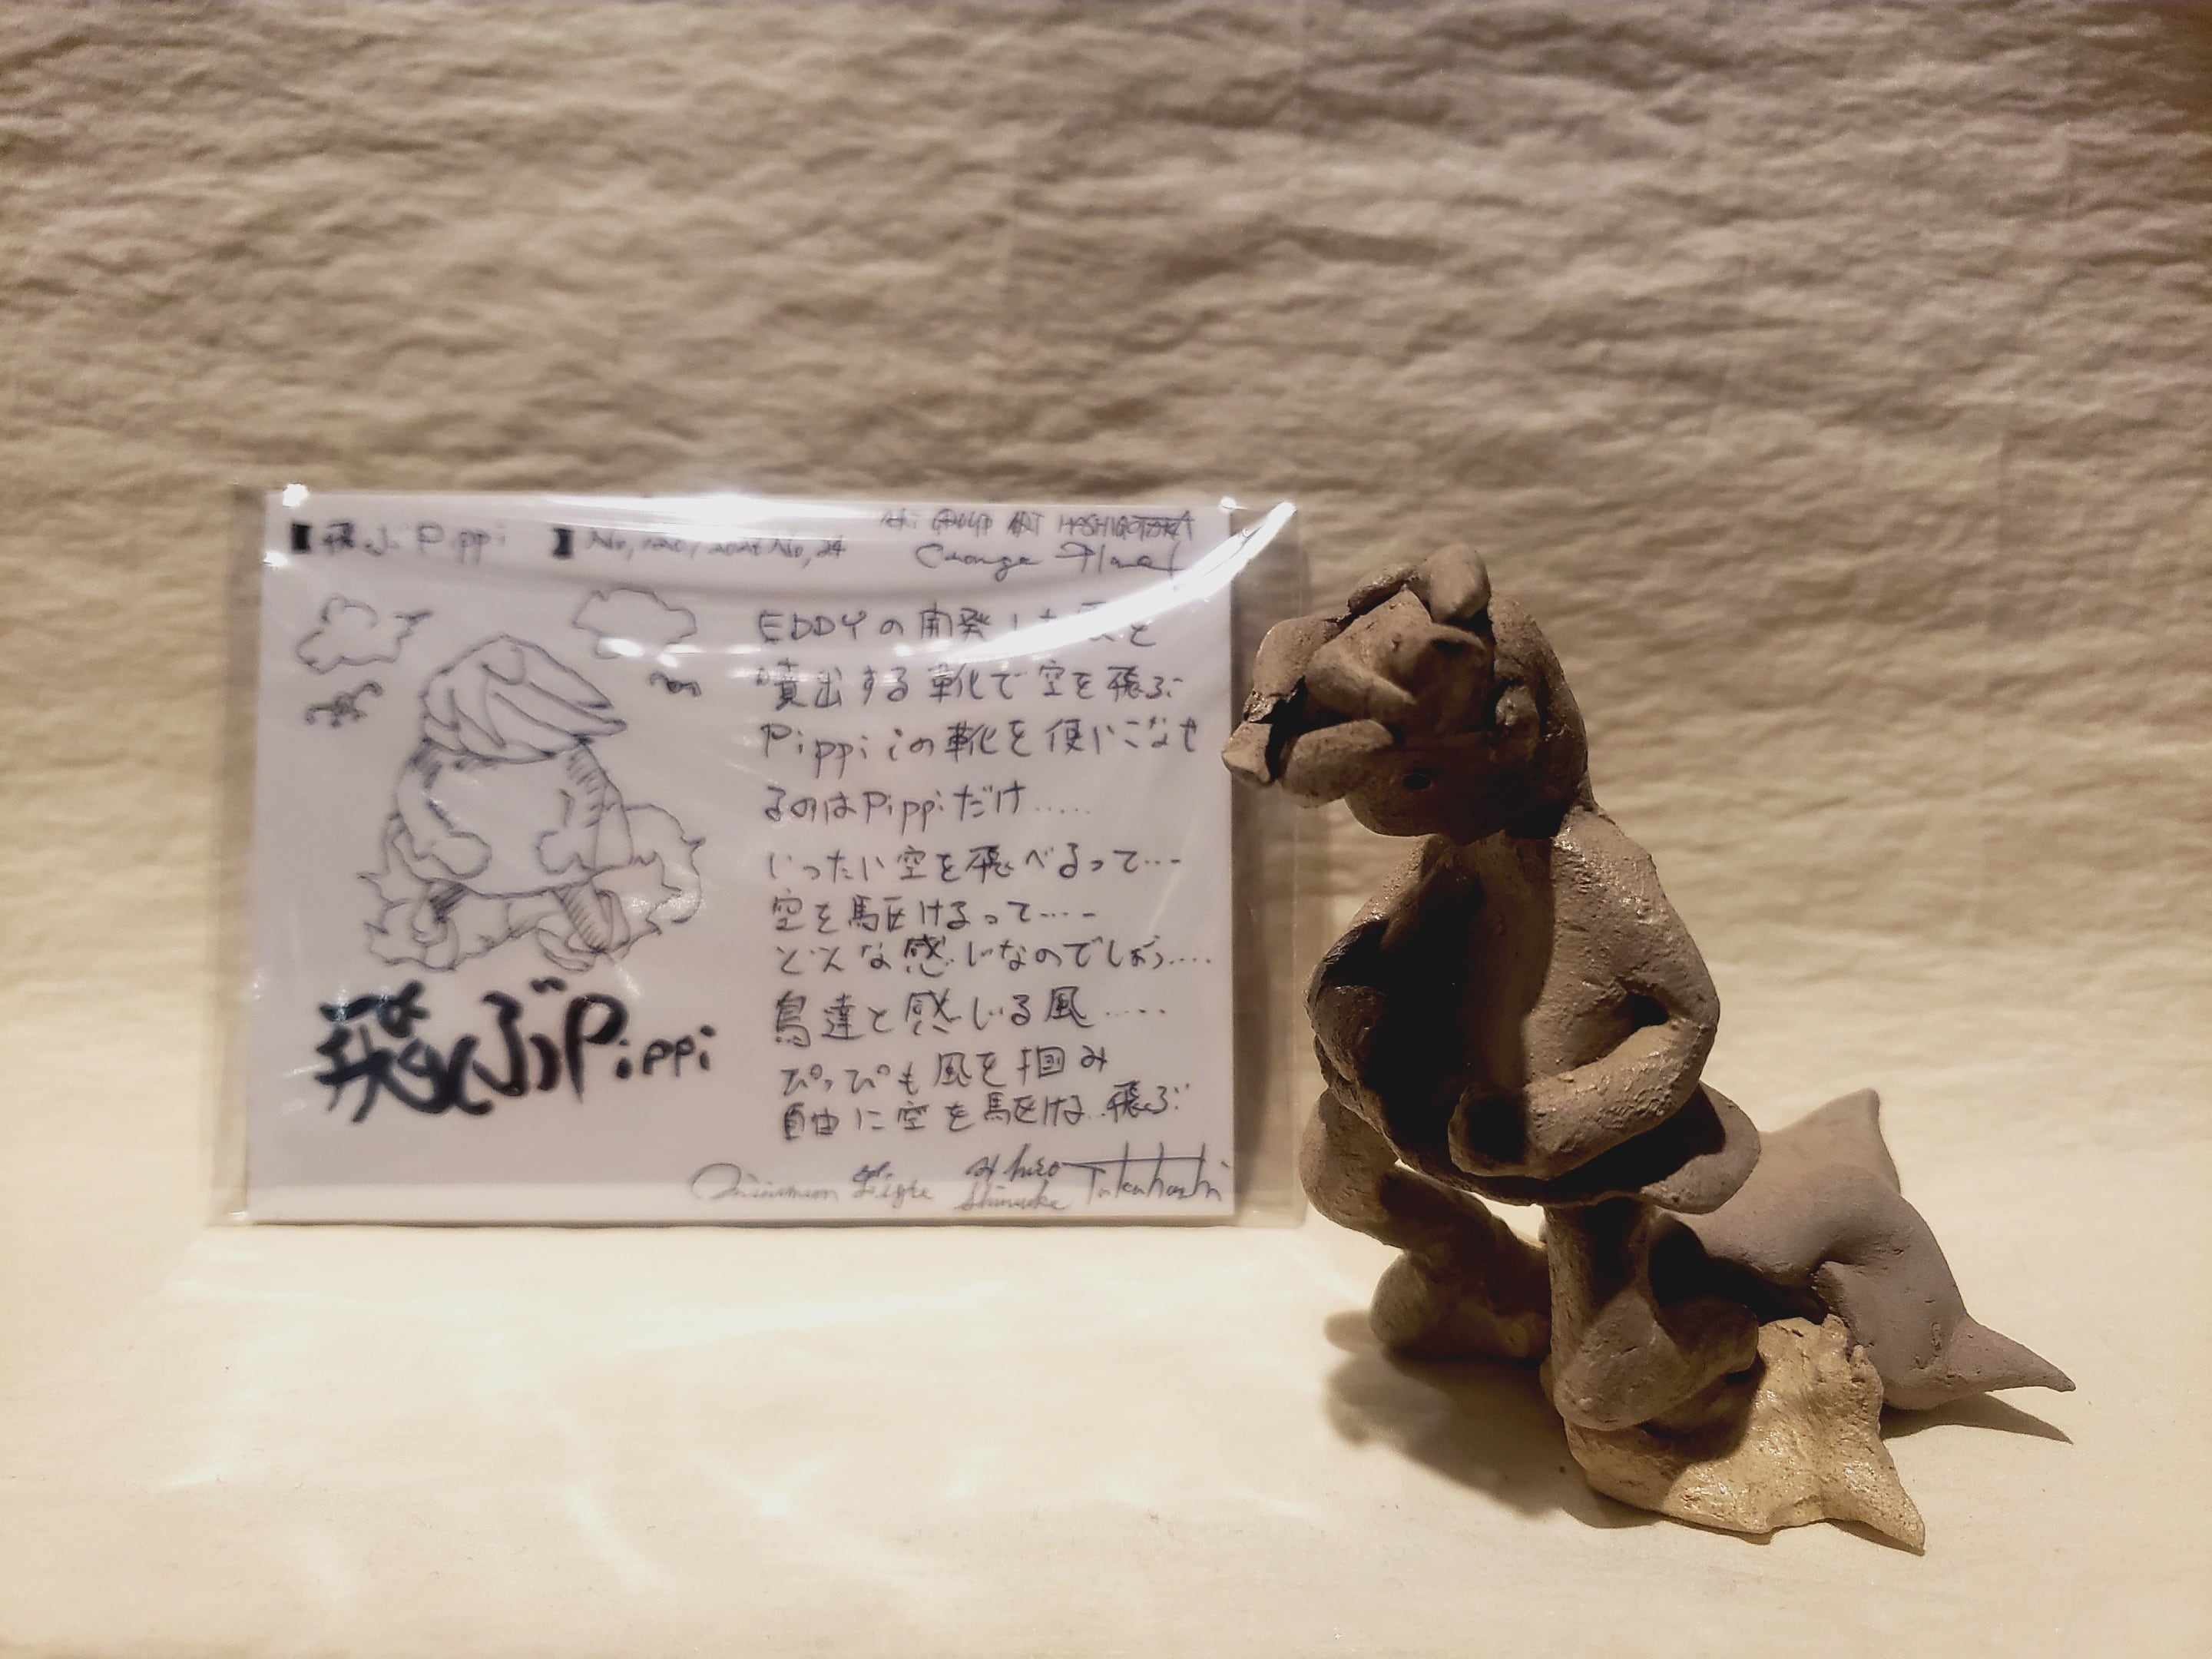 【飛ぶPippi 】No,120/2024 No,24
ART GROUP ART HASHIGOTAKA
Orange Planet
EDDYの開発した
噴出する靴で空を飛ぶ
Pippi iの靴を使いこなせ
るのはPippiだけ.....
いったい空を飛べるって...
空を駆けるって...
どんな感じなのでしょう....
鳥達と感じる風.....
ぴっぴも風を掴み
自由に空を駆ける..飛ぶ
飛ぶPippi
Shinsuke Takahashi